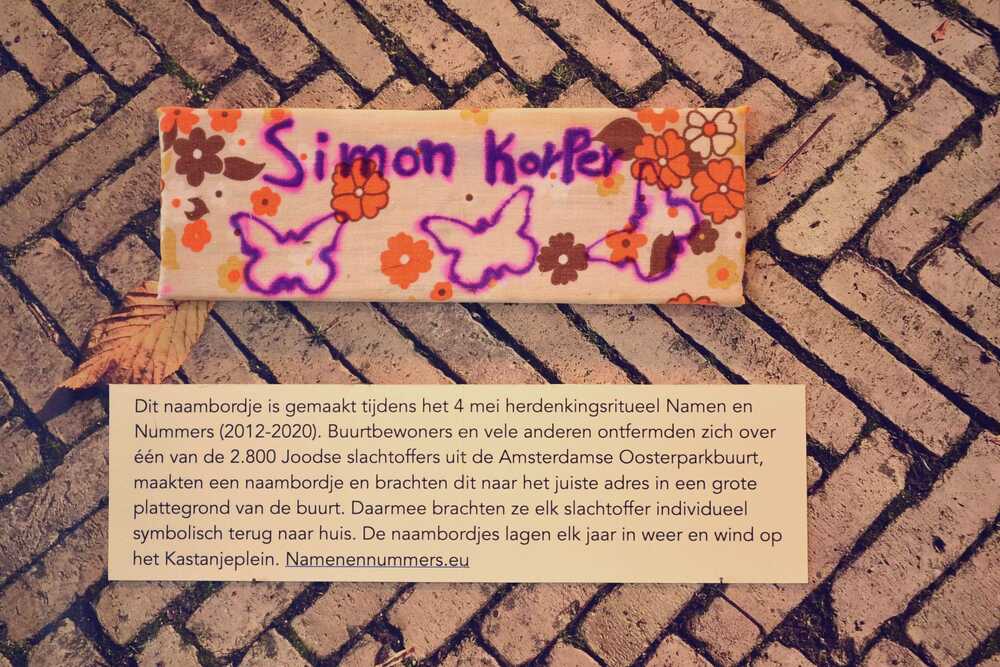 Simon Korper
Dit naambordje is gemaakt tijdens het 4 mei herdenkingsritueel Namen en
Nummers (2012-2020). Buurtbewoners en vele anderen ontfermden zich over
één van de 2.800 Joodse slachtoffers uit de Amsterdamse Oosterparkbuurt,
maakten een naambordje en brachten dit naar het juiste adres in een grote
plattegrond van de buurt. Daarmee brachten ze elk slachtoffer individueel
symbolisch terug naar huis. De naambordjes lagen elk jaar in weer en wind op
het Kastanjeplein. Namenennummers.eu